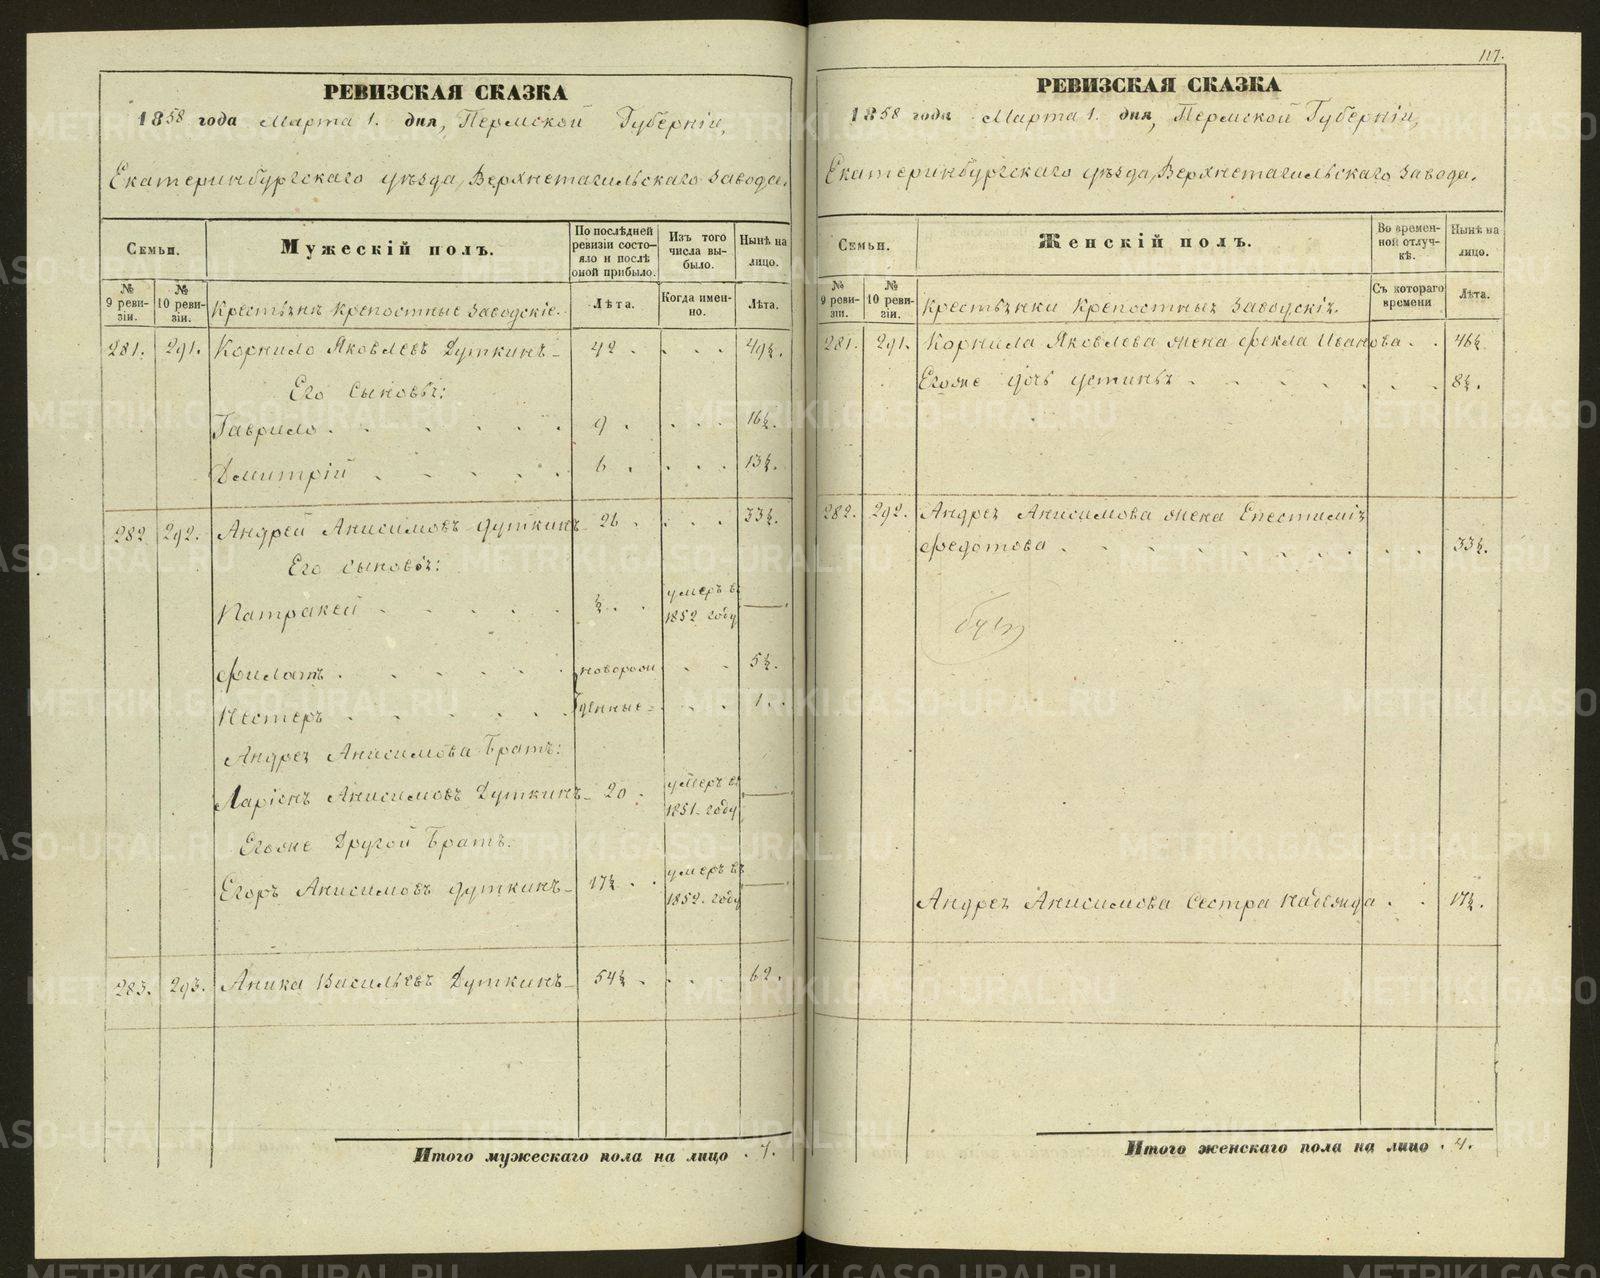 РЕВИЗСКАЯ СКАЗКА
1858 года Марта 1. дня, Пермской Губерніи,
Екатеринбургскаго уѣзда, Верхнетагильскаго завода.
Семьи.
Мужескій полъ.
По послѣдней ревизіи состояло и послѣ оной прибыло.
Изъ того числа выбыло.
Нынѣ на лицо.
№ 9 ревизіи.
№ 10 ревизіи.
Крестьянъ крепостные заводскіе.
Лѣта.
Когда именно.
Лѣта.
281. 291. Корнило Яковлевъ Дуткинъ 42 . . . 49½.
Его сыновья:
Гаврило . . . . . 9 . . . . 16½.
Дмитрій . . . . . 6 . . . . 13½.
282 292. Андрей Анисимовъ Дуткинъ 26 . . . . 33½.
Его сыновья:
Патракей . . . . . ½ . . умеръ въ 1852 году —
Филатъ . . . . . новорож . . 5½.
Нестеръ . . . . . денные . . . 1 .
Андрея Анисимова Братъ:
Ларіонъ Анисимовъ Дуткинъ 20 . умеръ въ 1851 году —
Егоже Другой Братъ.
Егоръ Анисимовъ Дуткинъ 17½ . . умеръ въ 1852. году —
283. 293. Аника Васильевъ Дуткинъ 54½ . . . 62 .
Итого мужескаго пола на лицо . 7.
117.
РЕВИЗСКАЯ СКАЗКА
1858 года Марта 1. дня, Пермской Губерніи,
Екатеринбургскаго уѣзда, Верхнетагильскаго завода.
Семьи.
Женскій полъ.
Во временной отлучкѣ.
Нынѣ на лицо.
№ 9 ревизіи.
№ 10 ревизіи.
Крестьянки Крепостныя Заводскія.
Съ котораго времени
Лѣта.
281. 291. Корнила Яковлева жена Фекла Иванова . . 46½
Егоже дочь Устинья . . . . . . . 8½.
282. 292. Андрея Анисимова жена Епестимія
Федотова . . . . . . . . . 33½.
Андрея Анисимова Сестра Надежда . . 17½.
Итого женскаго пола на лицо . 4.
METRIKI.GASO-URAL.RU